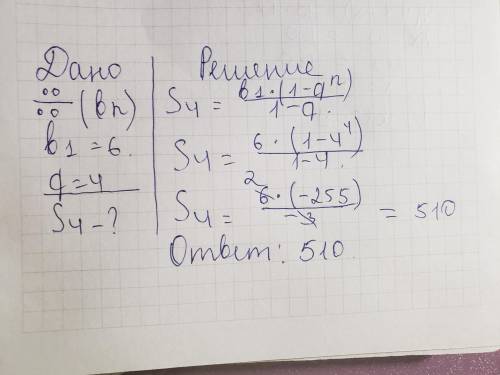 Дано
∺ (bn)
b1 = 6.
q = 4
S4 - ?
Решение
S4 = b1 · (1 - q^n) / 1 - q.
S4 = 6 · (1 - 4^4) / 1 - 4.
S4 = 2 6 · (-255) / -3 = 510
Ответ: 510.